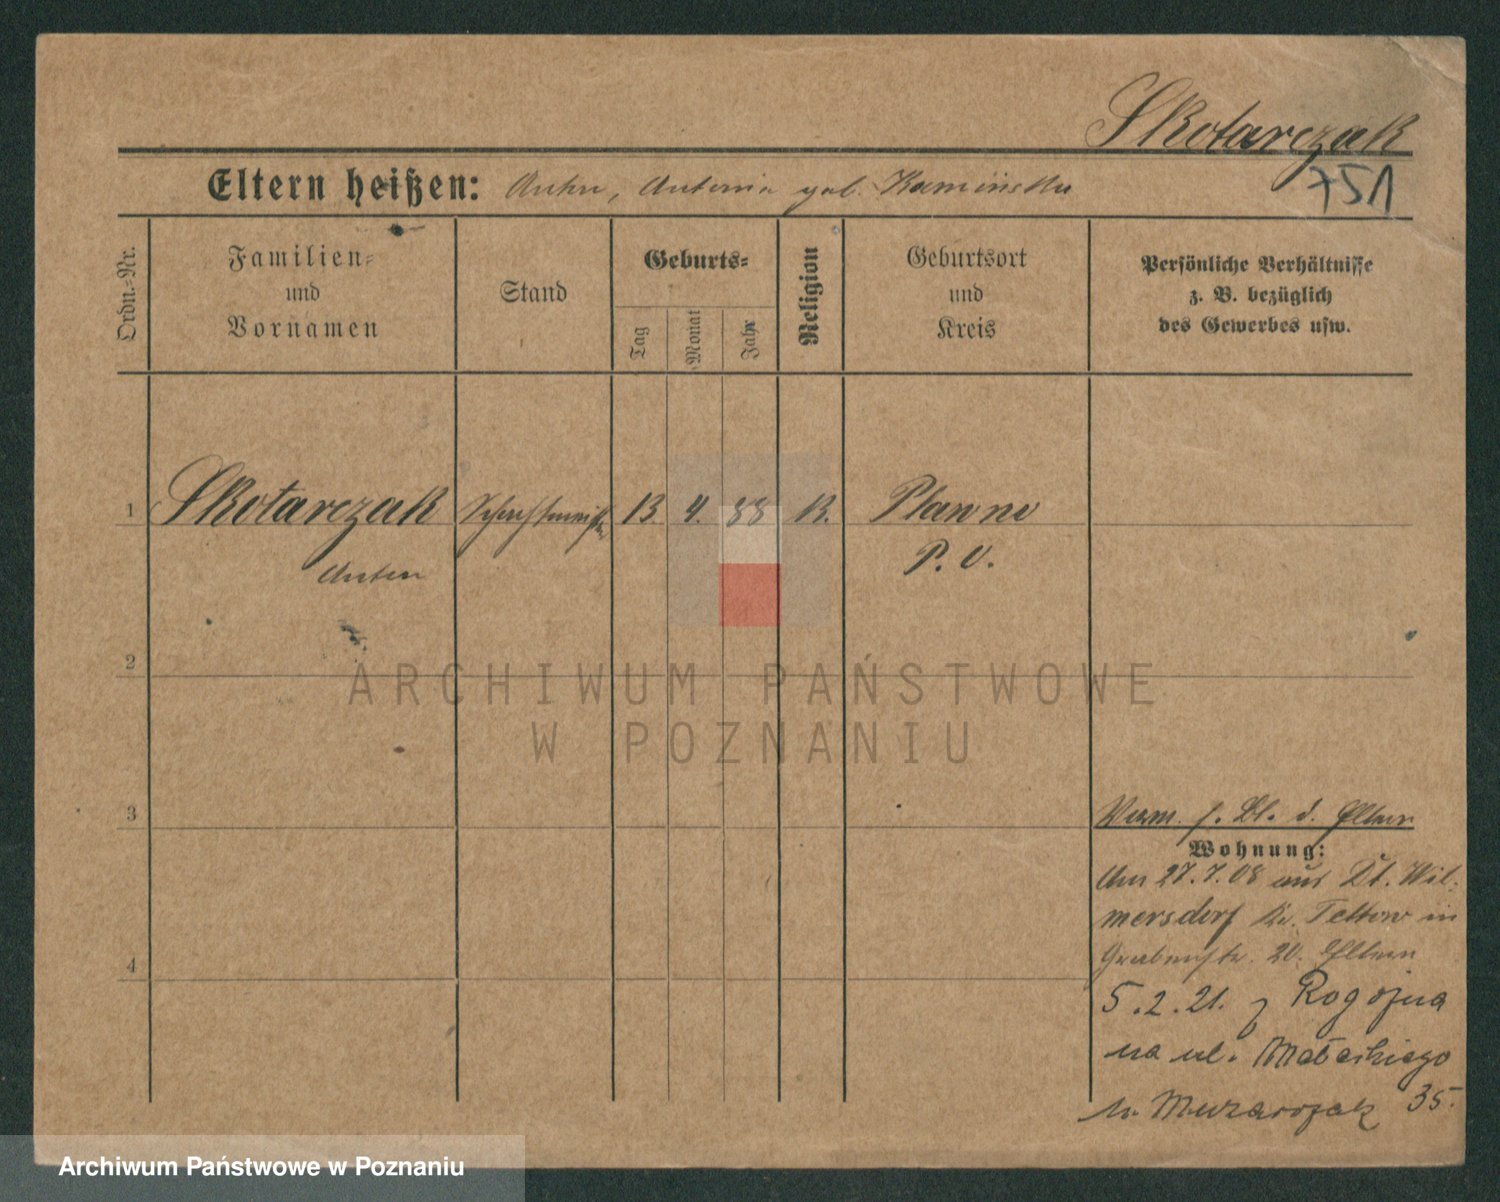 Skotarczak
751
Eltern heißen: Anton, Antonie geb. Kamińska
Ordn.-Nr.
Familien-
und
Vornamen
Stand
Geburts-
Tag
Monat
Jahr
Religion
Geburtsort
und
Kreis
Persönliche Verhältnisse
z. B. bezüglich
des Gewerbes usw.
1
Skotarczak
Anton
13. 4. 88
K.
Plawno
P. O.
2
ARCHIWUM PAŃSTWOWE
W POZNANIU
3
Verm. s. Bl. d. Eltern
Wohnung:
Am 27.7.08 aus Dt. Wil-
mersdorf Kr. Teltow in
Grabenstr. 20. Eltern
4
5.2.21. z Rogoźna
na ul. Małeckiego
35.
Archiwum Państwowe w Poznaniu